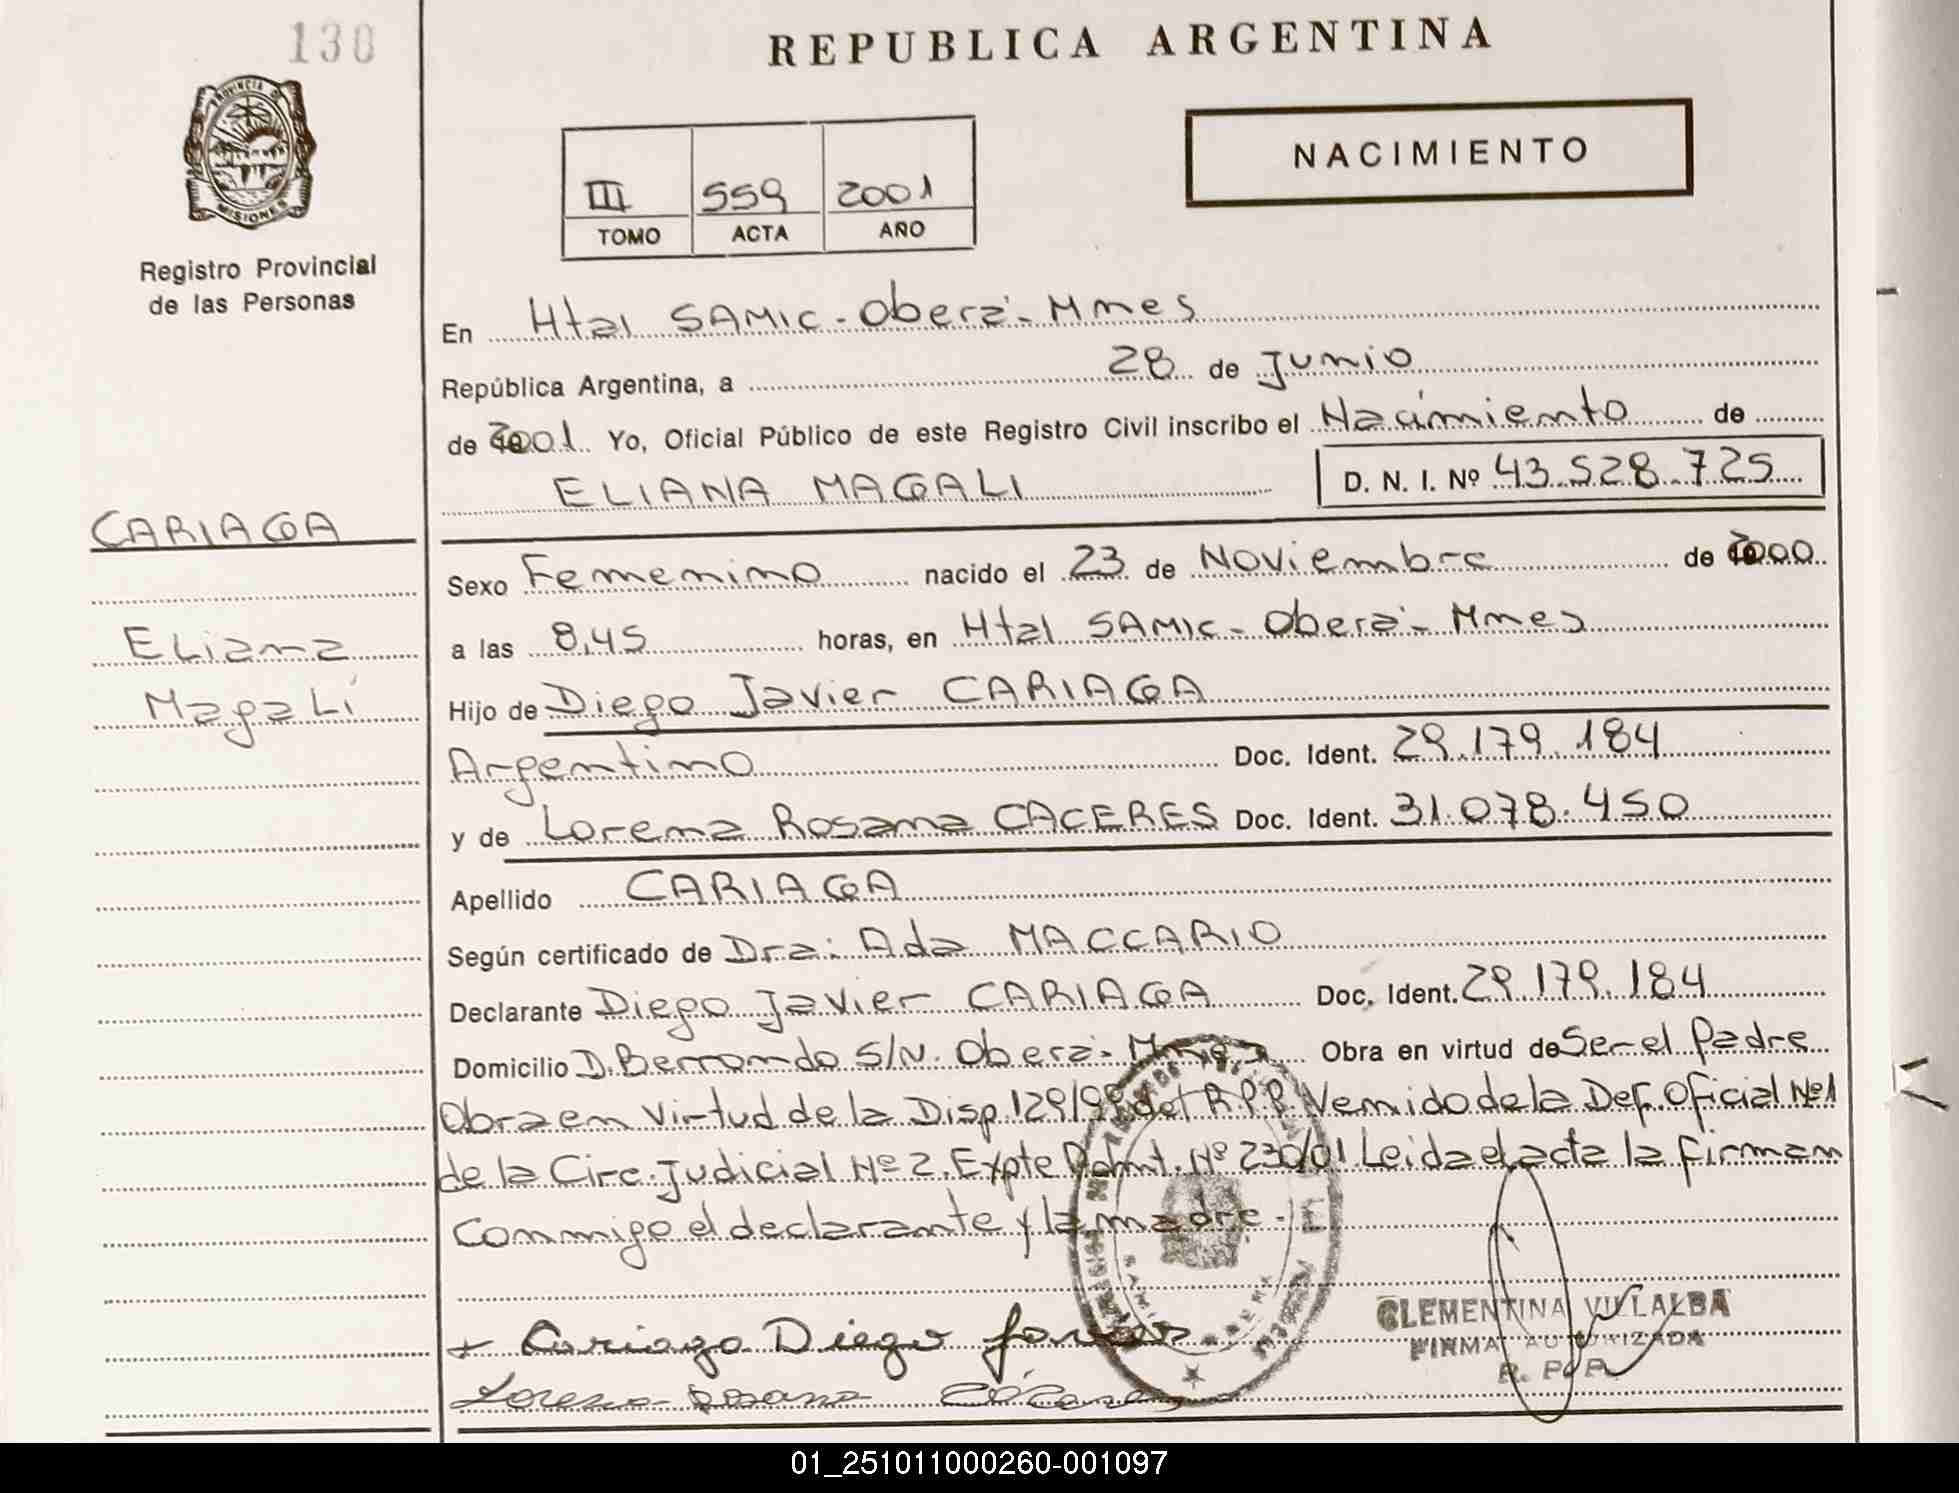 130
REPUBLICA ARGENTINA
PROVINCIA DE
MISIONES
Registro Provincial
de las Personas
NACIMIENTO
III 559 2001
TOMO ACTA AÑO
En Htal SAMIC - Oberá - Mnes
República Argentina, a 28 de Junio
de 2001. Yo, Oficial Público de este Registro Civil inscribo el Nacimiento de
ELIANA MAGALI D. N. I. Nº 43.528.725
CARIAGA
Eliana
Magalí
Sexo Femenino nacido el 23 de Noviembre de 2000
a las 8,45 horas, en Htal SAMIC - Oberá - Mnes
Hijo de Diego Javier CARIAGA
Argentino Doc. Ident. 29.179.184
y de Lorena Rosana CACERES Doc. Ident. 31.078.450
Apellido CARIAGA
Según certificado de Dra. Ada MACCARIO
Declarante Diego Javier CARIAGA Doc. Ident. 29.179.184
Domicilio D. Berrondo S/N. Oberá - Mnes Obra en virtud de Ser el Padre
Obra en virtud de la Disp. 129/98 del R.P.P. Venido de la Def. Oficial Nº 1
de la Circ. Judicial Nº 2. Expte Admt. Nº 230/01 Leida el acta la firman
conmigo el declarante y la madre.-
+ Cariaga Diego Javier
Lorena Rosana Cáceres
CLEMENTINA VILLALBA
FIRMA AUTORIZADA
R. P. P.
01_251011000260-001097